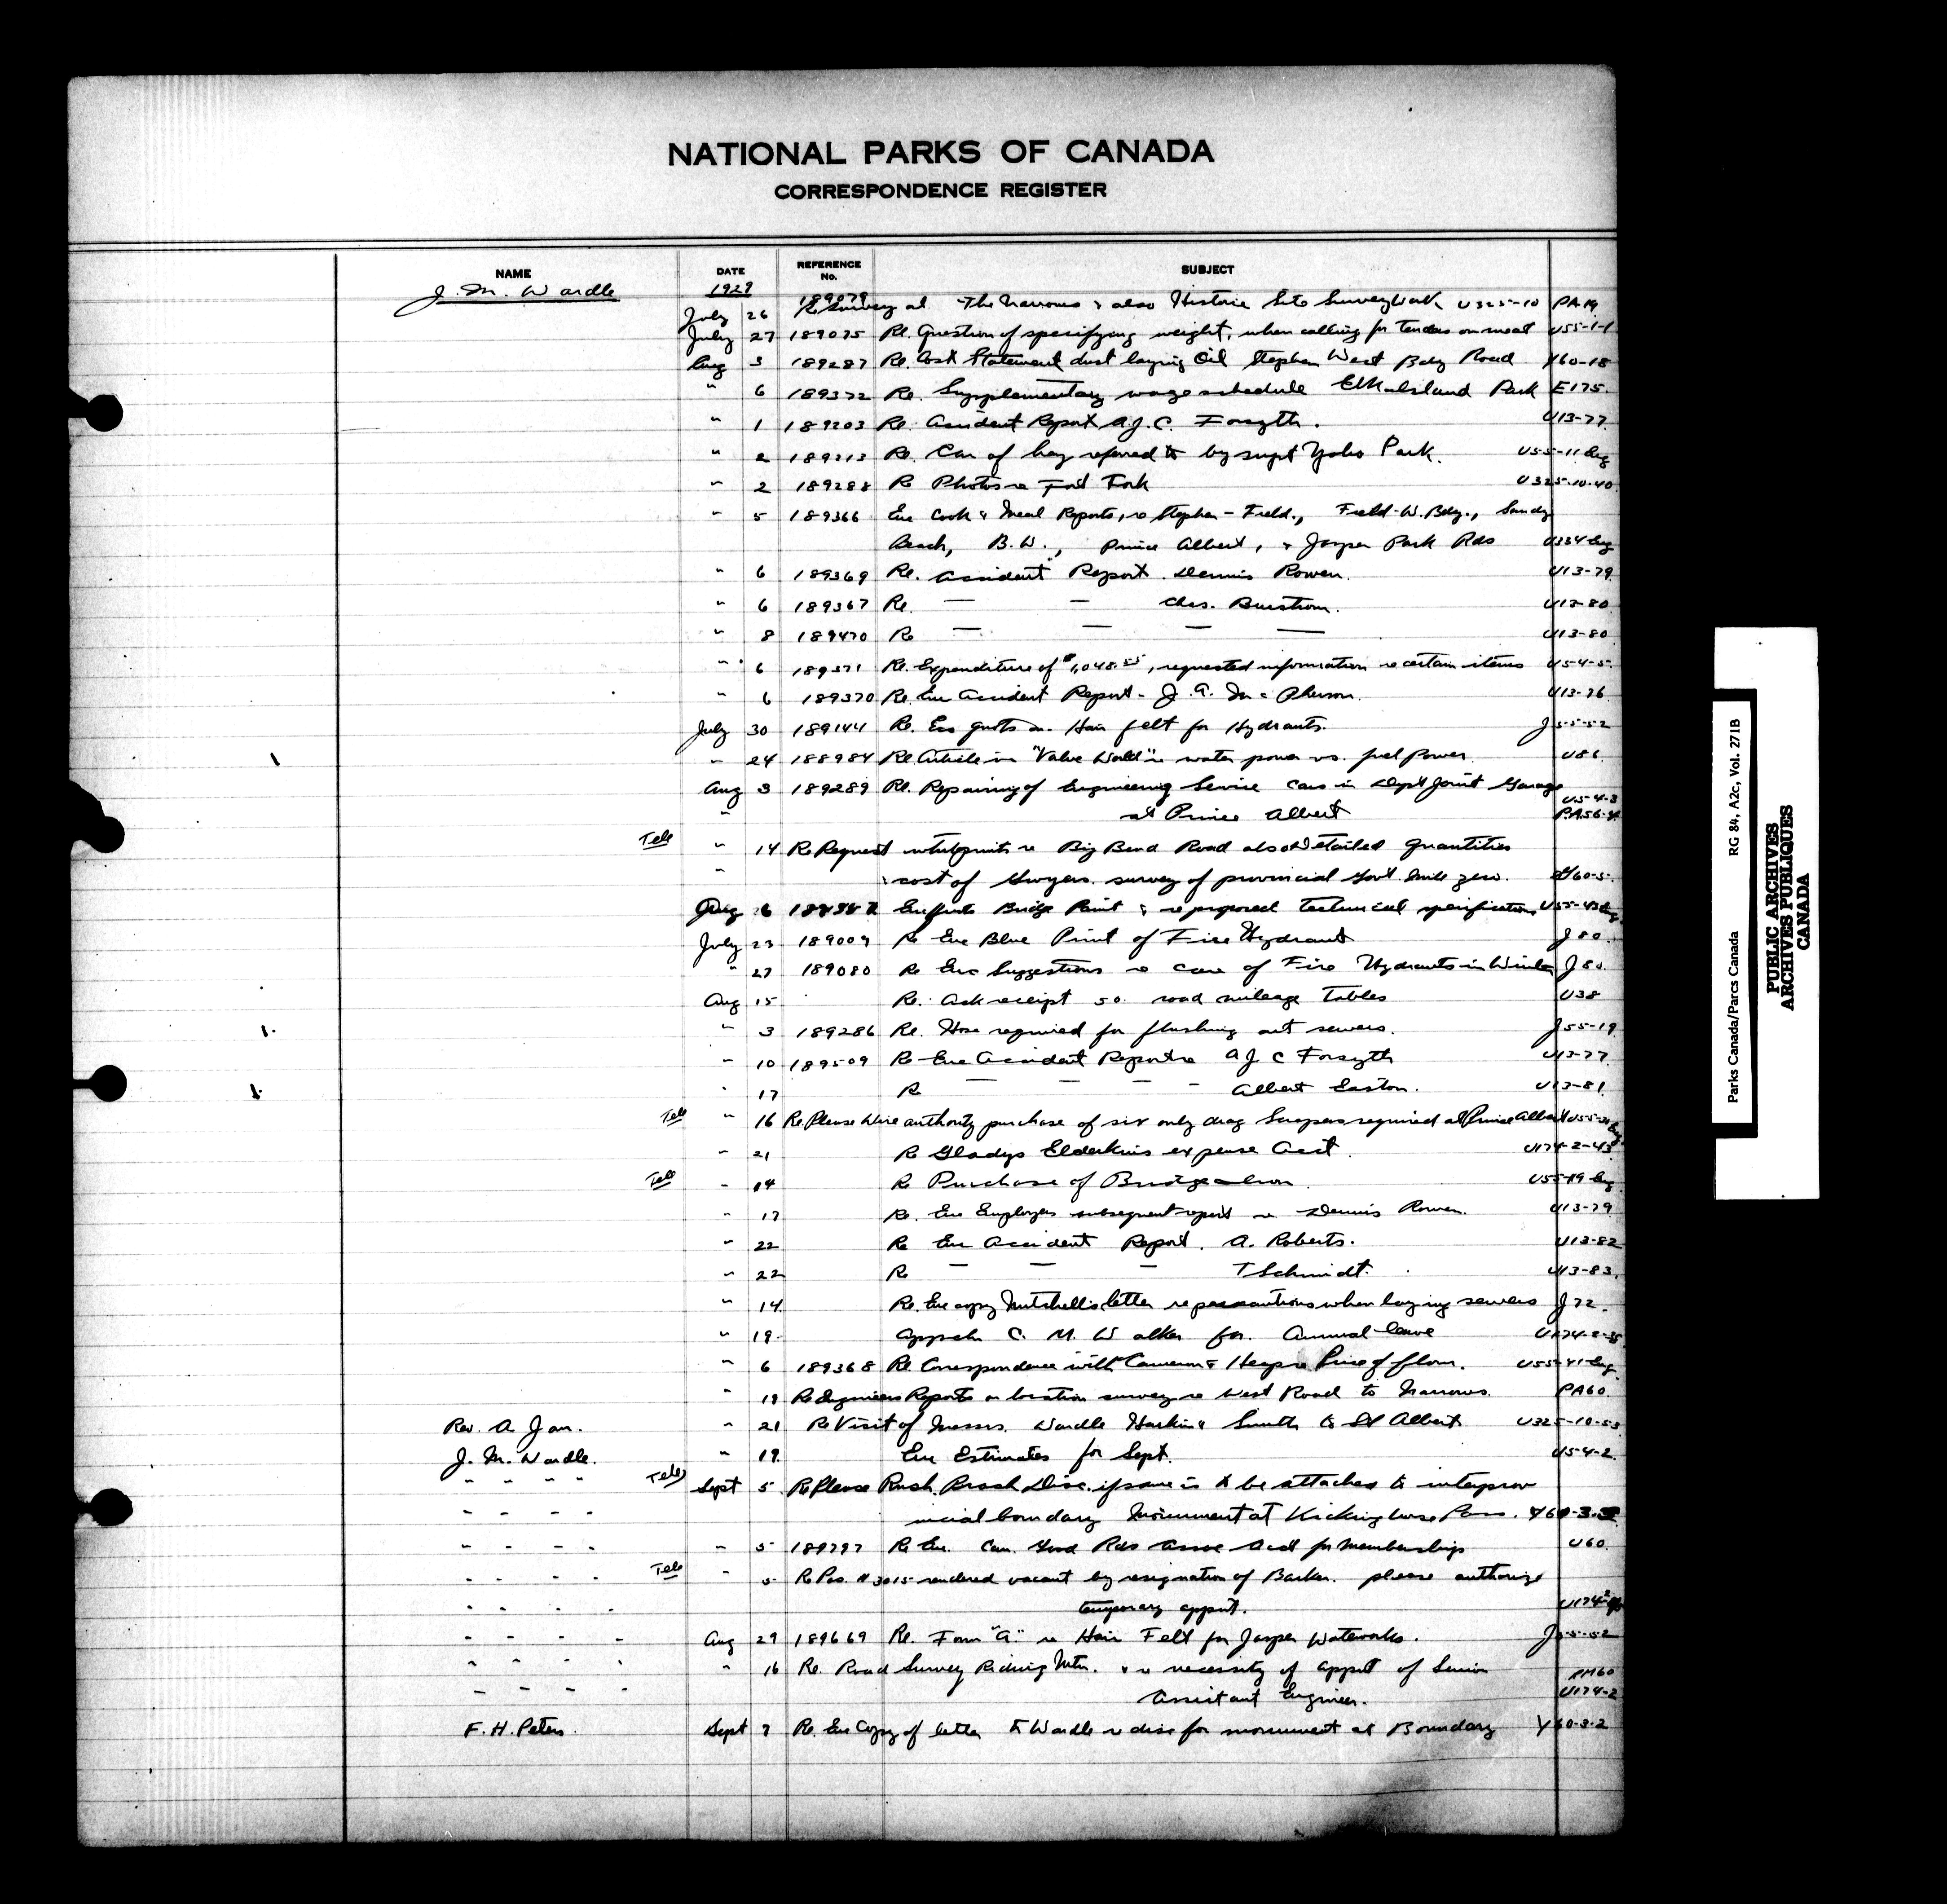 NATIONAL PARKS OF CANADA
CORRESPONDENCE REGISTER
NAME DATE REFERENCE No. SUBJECT
J. M. Wardle 1929
July 26 189079 Re Survey at The Narrows & also Historic Site Survey Work U325-10 PA19
July 27 189075 Re. Question of specifying weight, when calling for tenders on meat U55-1-1
Aug 3 189287 Re. Cost Statement dust laying Oil Stephen West Bdy Road Y60-18
" 6 189372 Re. Supplementary wage schedule Elk Island Park E175.
" 1 189203 Re. Accident Report A.J.C. Forsyth. U13-77
" 2 189213 Re. Car of hay referred to by supt Yoho Park. U55-11 Eng
" 2 189288 Re Photos re Fort Fork U325-10-40
" 5 189366 Enc Cook & Meal Reports, re Stephen - Field., Field-W.Bdy., Sandy
Beach, B.W., Prince Albert, & Jasper Park Rds U334 Eng
" 6 189369 Re. Accident Report. Dennis Rowen. U13-79
" 6 189367 Re. — — Chas. Burstrom. U13-80
" 8 189470 Re — — — — U13-80
" 6 189371 Re. Expenditure of $1,048.55, requested information re certain items U5-4-5
" 6 189370 Re. Enc Accident Report - J. A. McPherson. U13-76
July 30 189144 Re. Enc quots on Hair felt for Hydrants. J55-52
" 24 188984 Re Article in "Valve World" re water power vs. fuel power U86
Aug 3 189289 Re. Repairing of Engineering Service Cars in Dept Joint Garage
" at Prince Albert U5-4-3 PA56-4
Tele " 14 Re Request whiteprints re Big Bend Road also Detailed Quantities
" & cost of survey of provincial Govt. mile zero. 60-5
Aug 6 Bridge Paint & re proposed technical specifications U55-43 Eng
July 23 189009 Re Enc Blue Print of Fire Hydrant J80.
" 27 189080 Re Enc Suggestions re care of Fire Hydrants in Winter J80
Aug 15 Re. Ack receipt 50 road mileage Tables U38
" 3 189286 Re. Hose required for flushing out sewers. J55-19
" 10 189509 Re Enc Accident Report re A J C Forsyth U13-77
" 17 Re — — — — Albert Easton. U13-81
Tele " 16 Re. Please Wire authority purchase of six only drag Scrapers required at Prince Albert
" 21 Re Gladys Elderkins expense Acct. U174-2-43
Tele " 14 Re Purchase of Bridge Iron U55-19 Eng
" 17 Re. Enc Employers subsequent report re Dennis Rowen. U13-79
" 22 Re Enc Accident Report. A. Roberts. U13-82
" 22 Re — — — T Schmidt. U13-83
" 14 Re. Enc copy Mitchell's letter re precautions when laying sewers J72.
" 19 C. M. Walker for. Annual leave
" 6 189368 Re. Correspondence with Cameron & Heap re Price of flour. U55-41-Eng
" 19 Re Engineers Reports on location survey re West Road to Narrows. PA60.
Rev. A Jan. " 21 Re Visit of Messrs. Wardle Harkin & Smith to St Albert U325-10-53
J. M. Wardle. " 19 Enc Estimates for Sept. U5-4-2
" " " " Tele Sept 5 Re Please Rush Brass Disc. if same is to be attached to interprov
" " " " incial boundary Monument at Kicking horse Pass.
" " " " " 5 189797 Re Enc. Can. Good Rds Assoc Acct for membership U60.
" " " " Tele " 5 Re Pos. # 3015 rendered vacant by resignation of Barker. please authorize
" " " " temporary appnt.
" " " " Aug 29 189669 Re. Form "A" re Hair Felt for Jasper Waterworks. J55-52
" " " " " 16 Re. Road Survey Riding Mtn. & re necessity of appnt of Senior RM60
" " " " Assistant Engineer. U174-2
F. H. Peters. Sept 7 Re. Enc Copy of letter to Wardle re disc for monument at Boundary Y60-3-2
Parks Canada/Parcs Canada RG 84, A2c, Vol. 271B
PUBLIC ARCHIVES
ARCHIVES PUBLIQUES
CANADA